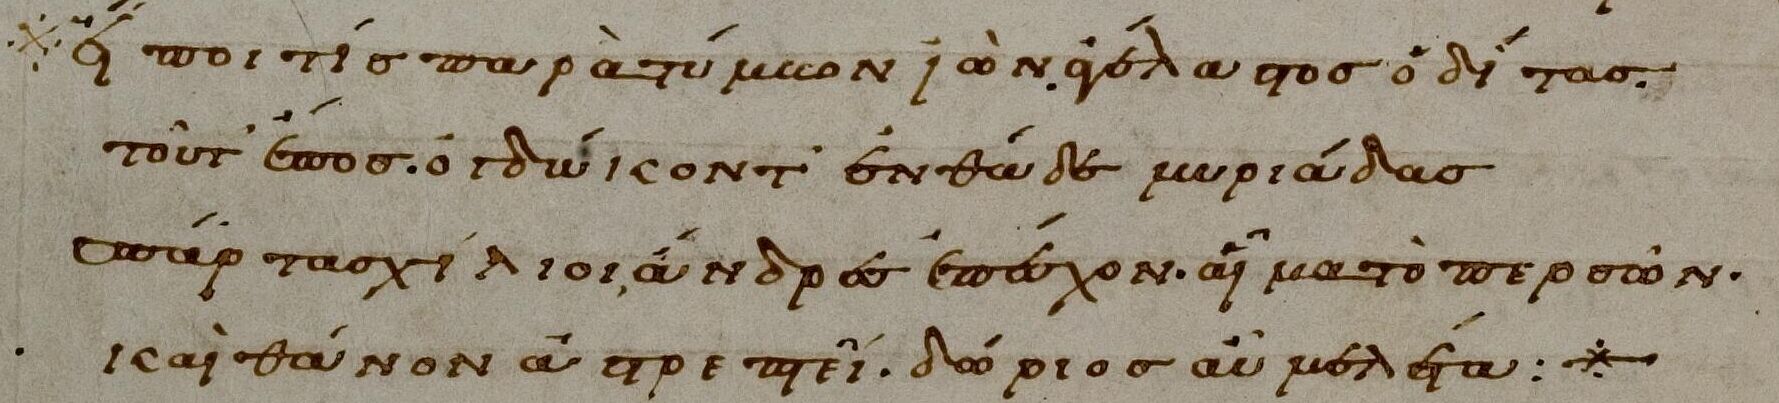 ※ εἴποι τίς παρὰ τύμβον ἰὼν. ἀγέλαστος ὁδίτας.
τοῦτ' ἔπος. ὀγδώκοντ' ἐνθάδε μυριάδας
σπάρτας χίλιοι, ἄνδρες ἐπέσχον. αἷμα τὸ περσῶν.
καὶ θάνον ἀστρεπτεί. δώριος ἁ μελέτα: ※